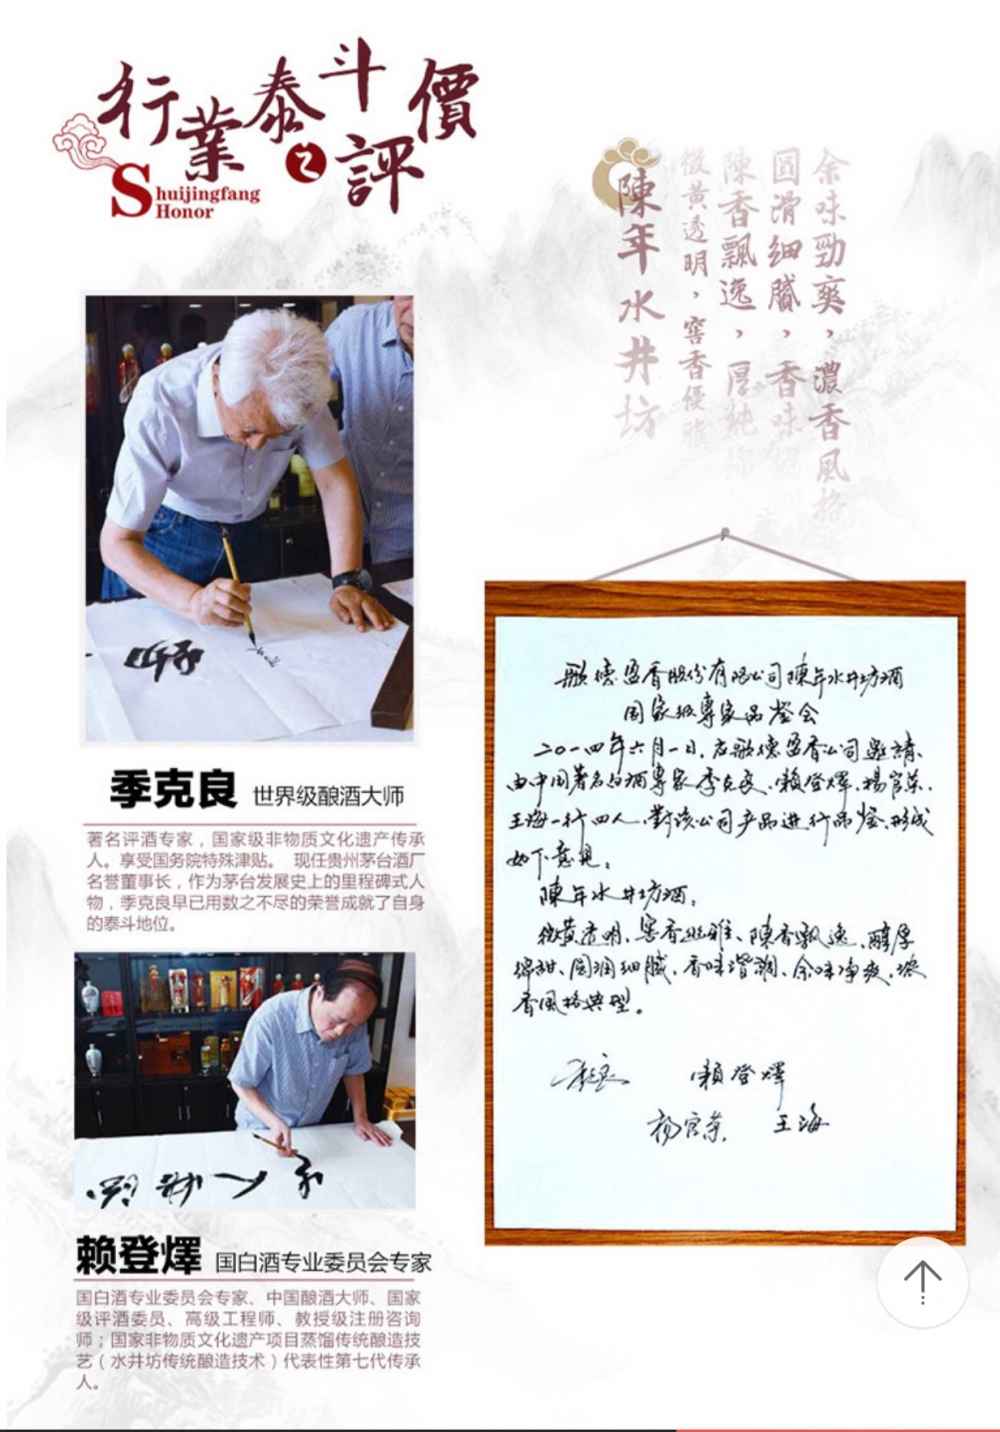 行業泰斗之評價
Shuijingfang
Honor
陳年水井坊
微黄透明，窖香優雅
陳香飄逸，厚純
圓滑細膩，香味
余味勁爽，濃香風格
季克良 世界级酿酒大师
著名评酒专家，国家级非物质文化遗产传承
人。享受国务院特殊津贴。 现任贵州茅台酒厂
名誉董事长，作为茅台发展史上的里程碑式人
物，季克良早已用数之不尽的荣誉成就了自身
的泰斗地位。
赖登燡 国白酒专业委员会专家
国白酒专业委员会专家、中国酿酒大师、国家
级评酒委员、高级工程师、教授级注册咨询
师；国家非物质文化遗产项目蒸馏传统酿造技
艺（水井坊传统酿造技术）代表性第七代传承
人。
歌德盈香股份有限公司陳年水井坊酒
国家级專家品鉴会
二〇一四年六月一日，应歌德盈香公司邀請，
由中国著名白酒專家季克良、賴登燡、楊官荣、
王海一行四人，對該公司产品进行品鉴，形成
如下意見：
陳年水井坊酒：
微黄透明、窖香幽雅、陳香飘逸、醇厚
绵甜、圆润细腻、香味谐调、余味净爽、浓
香风格典型。
季克良 賴登燡
杨官荣 王海